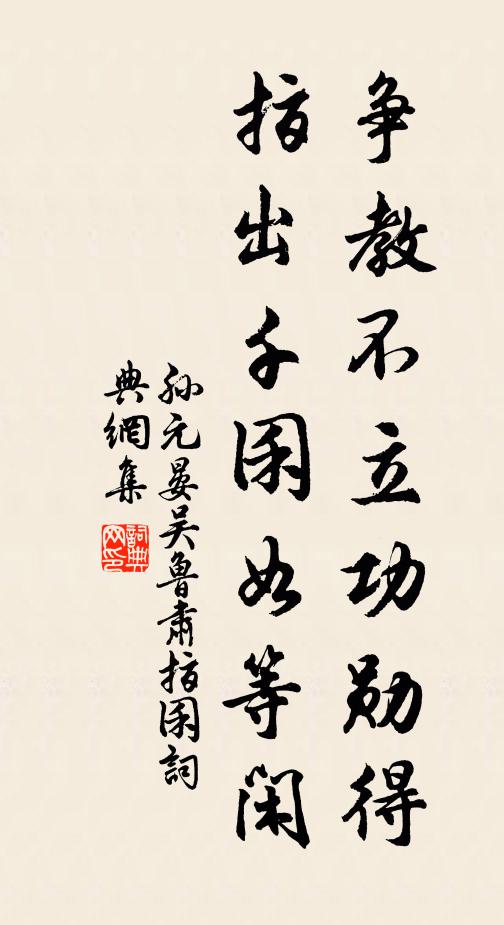 争教不立功勋得
指出千囷如等闲
孙元晏吴鲁肃指囷詞
典網集
詞典网印